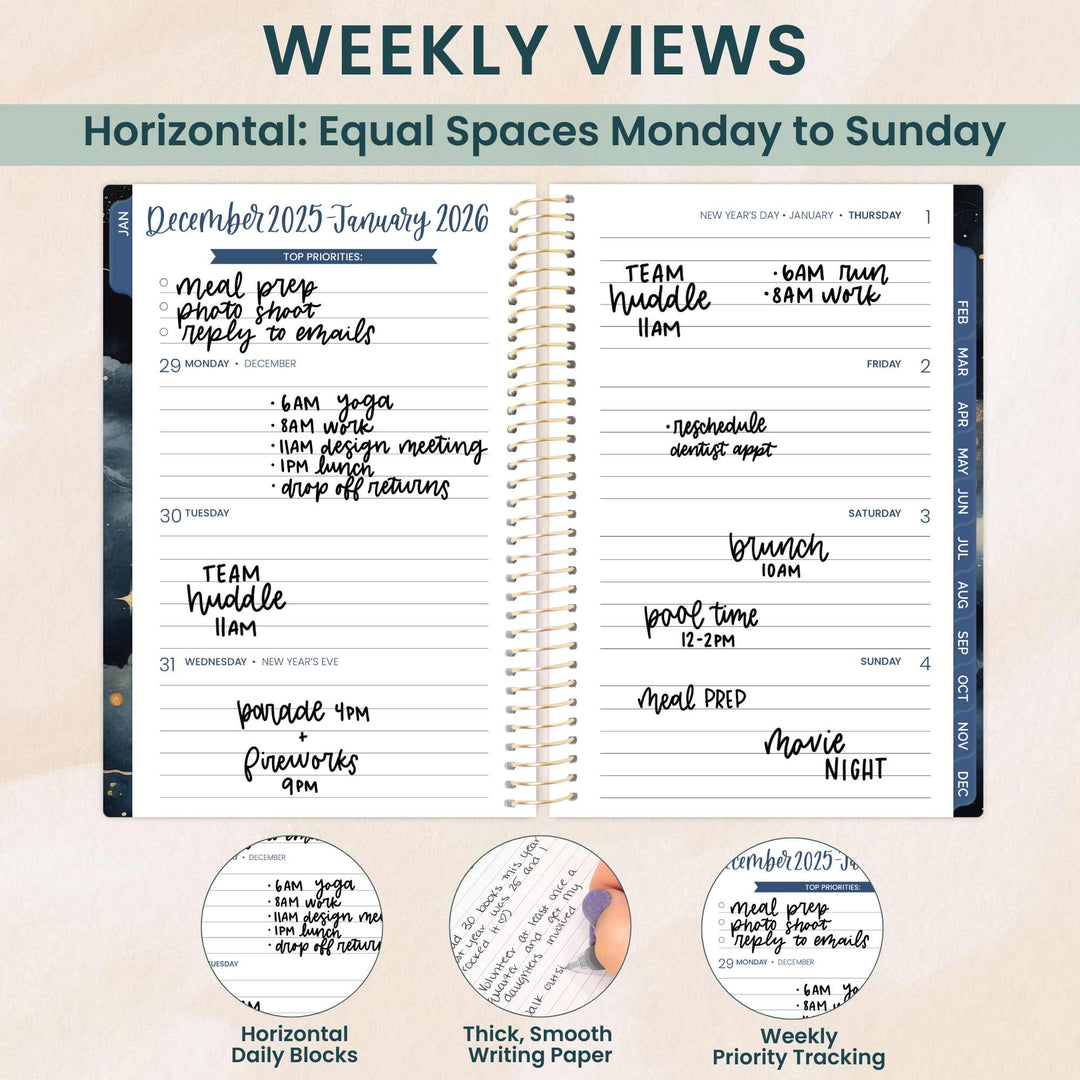 WEEKLY VIEWS
Horizontal: Equal Spaces Monday to Sunday
JAN
December 2025-January 2026
TOP PRIORITIES:
meal prep
photo shoot
reply to emails
29 MONDAY • DECEMBER
• 6AM yoga
• 8AM work
• 11AM design meeting
• 1PM lunch
• drop off returns
30 TUESDAY
TEAM
huddle
11AM
31 WEDNESDAY • NEW YEAR'S EVE
parade 4PM
+
fireworks
9PM
NEW YEAR'S DAY • JANUARY • THURSDAY 1
TEAM
huddle
11AM
• 6AM run
• 8AM work
FRIDAY 2
• reschedule
dentist appt
SATURDAY 3
brunch
10AM
pool time
12-2PM
SUNDAY 4
meal PREP
movie
NIGHT
FEB
MAR
APR
MAY
JUN
JUL
AUG
SEP
OCT
NOV
DEC
• DECEMBER
• 6AM yoga
• 8AM work
• 11AM design me
• 1PM lunch
• drop off return
UESDAY
Horizontal
Daily Blocks
30 books this year
year was 25 and I
rocked it
Volunteer at least once a
quarter and get my
daughters involved
Thick, Smooth
Writing Paper
cember 2025-Ja
TOP PRIORITIES:
meal prep
photo shoot
reply to emails
29 MONDAY • DECEMBER
• 6AM yo
• 8AM w
Weekly
Priority Tracking